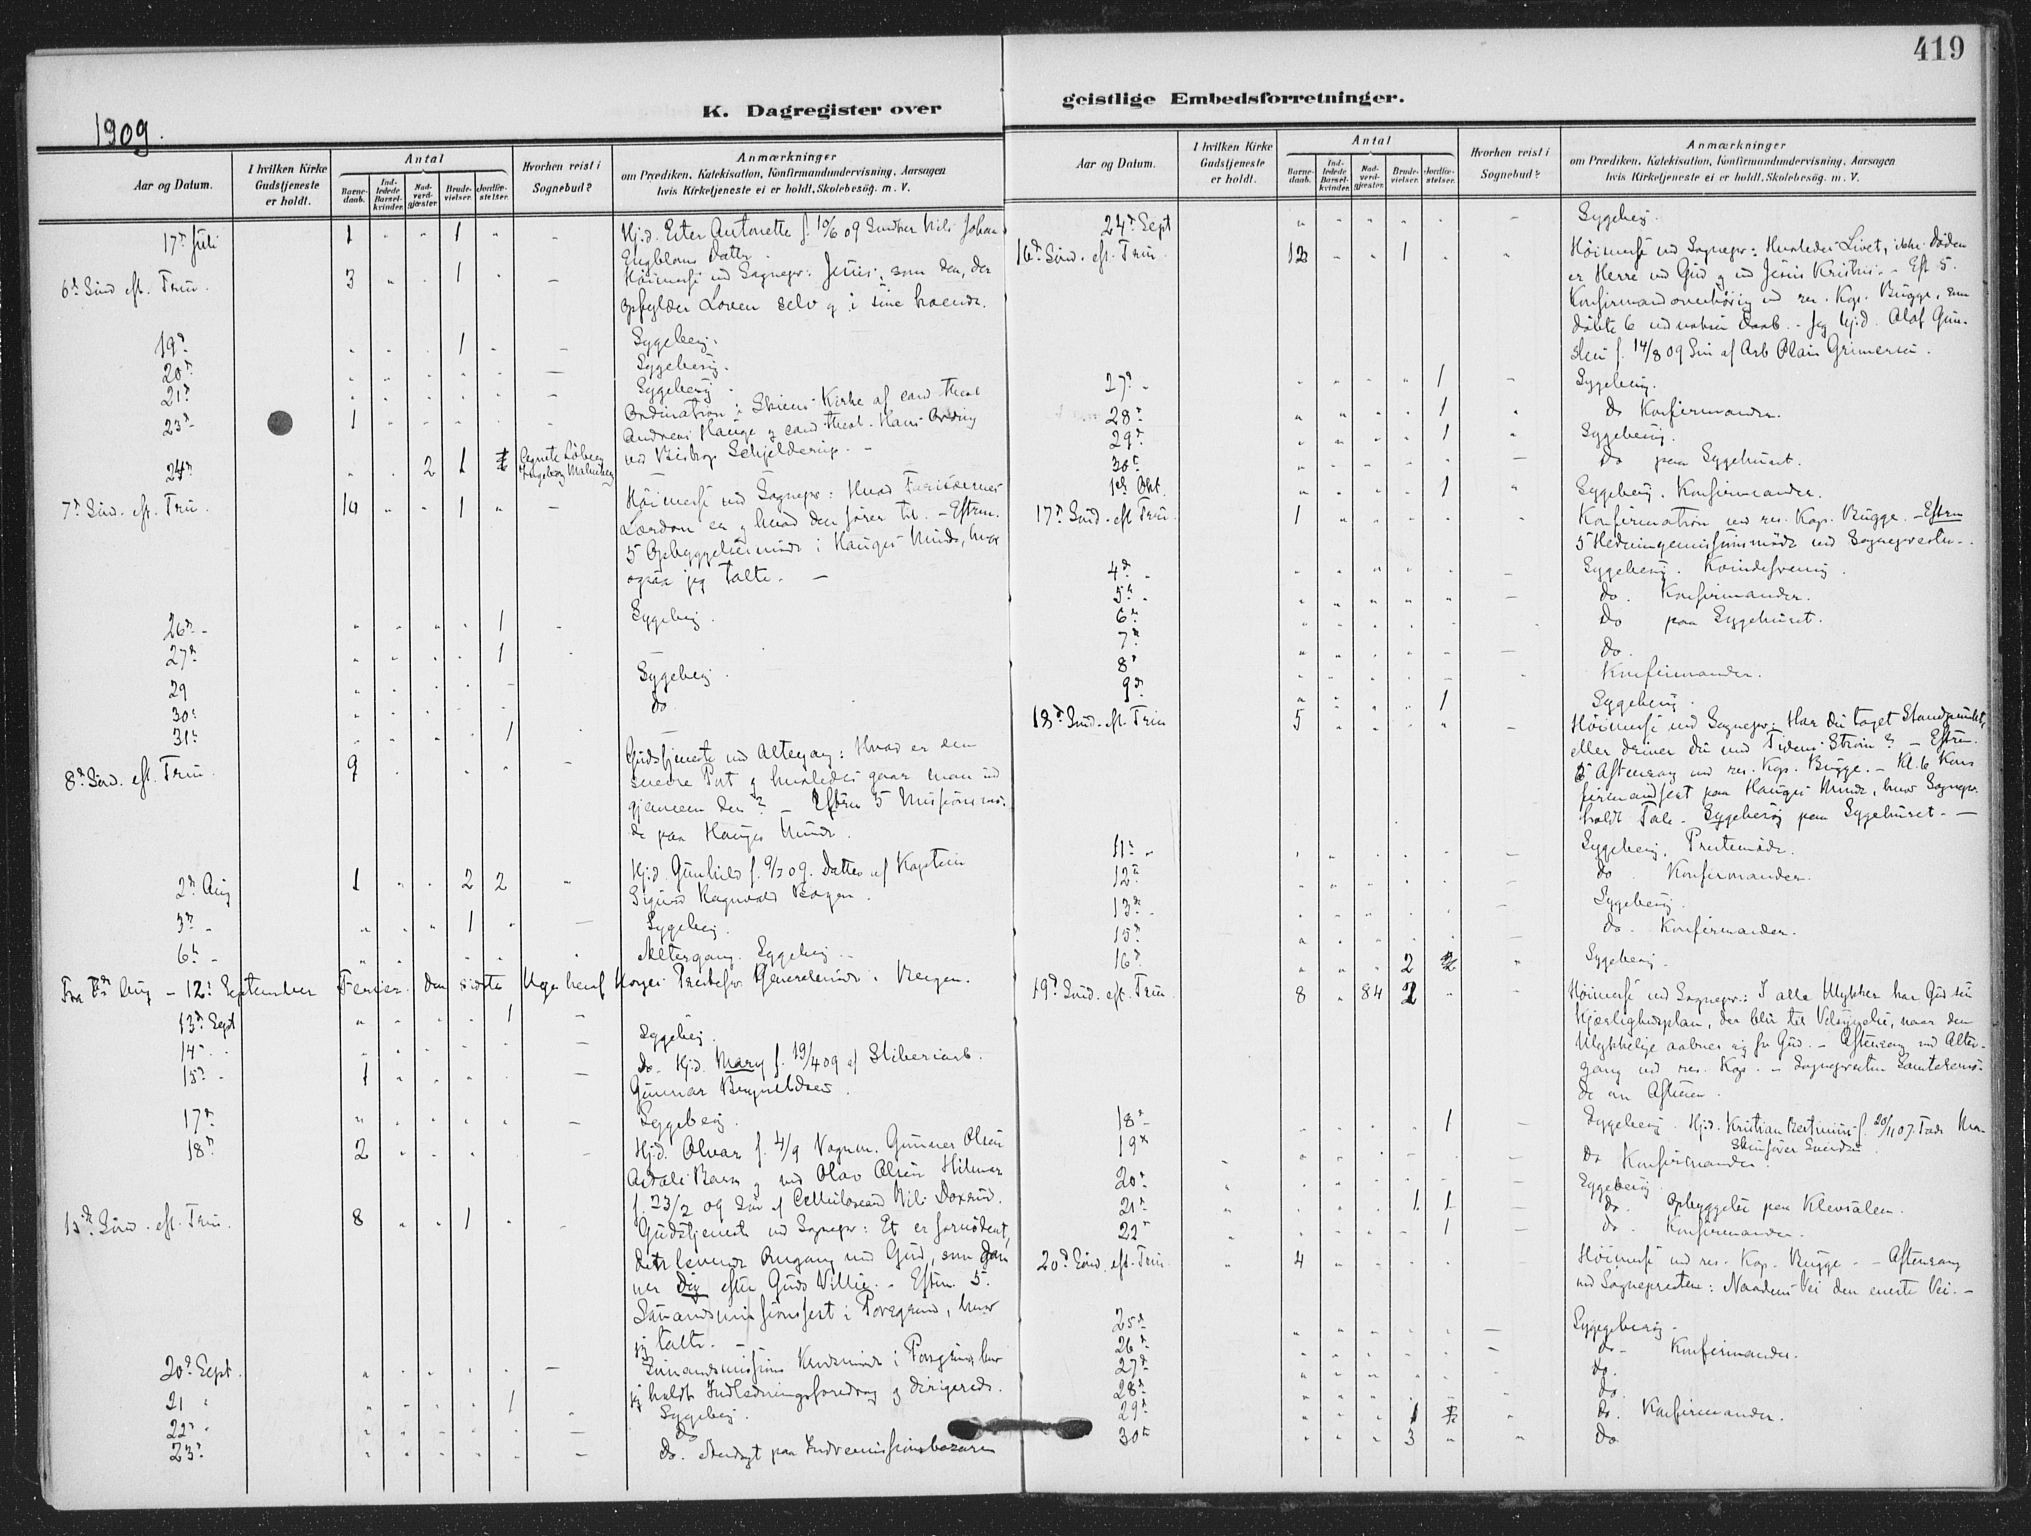 419
K. Dagregister over
geistlige Embedsforretninger.
1909.
Aar og Datum.
I hvilken Kirke Gudstjeneste er holdt.
Antal
Barnedaab.
Indledede Barselkvinder.
Nadverdgjester.
Brudevielser.
Jordfæstelser.
Hvorhen reist i Sognebud?
Anmærkninger
om Prædiken, Katekisation, Konfirmandundervisning, Aarsagen
hvis Kirketjeneste ei er holdt, Skolebesøg, m. V.
17de Juli 1 1 Hjd. Ester Antonette f. 10/6 09
Datter
6te Sønd eft. Trin. 3 1 Høimesse ved Sognepr: Jesus, som den, der
opfylder Loven selv og i sine troende.
19de 1 Sygebesøg.
20de Sygebesøg.
21de Sygebesøg.
23de 1 Ordination i Skiens Kirke af cand. theol
Andreas Hauge og cand. theol. Hans Ording
ved Biskop Schjelderup.
24de 2 1 Ingeborg
7de Sønd. eft. Trin. 14 1 Høimesse ved Sognepr: Hvad Farisæernes
Lærdom er og hvad den fører til. – Efterm.
5 Opbyggelsesmøde i Hauges Minde, hvor
også jeg talte. –
26de 1 Sygebesøg.
27de 1
29 Sygebesøg.
30te do
31te 1
8de Sønd. eft. Trin. 9 Gudstjeneste ved Altegang: Hvad er den
snevre Port og hvorledes gaar man ind
gjennem den? – Efterm 5 Missionsmø-
de paa Hauges Minde.
2den Aug 1 2 2 Hjd. Gunhild f. 9/7 09. Datter af Kaptein
Sigurd Ragnvald
3die 1 Sygebesøg.
6te Altergang. Sygebesøg.
Fra Aug – 12te September Ferier den sidste Uge Norges Prestefor. Generalmøde i Bergen.
13de Sept 1
14de Sygebesøg.
15de 1 Do. Hjd. Mary f. 19/4 09 af
Gunnar
17de Sygebesøg.
18de 2 Hjd. Olvar f. 4/9 Gunnar Olsen
og ved Olav Olsen Hilmar
f. 23/2 09 Søn af
15de Sønd. eft. Trin. 8 1 Gudstjeneste ved Sognepr: Et er fornødent,
det levende Omgang med Gud, som dan
ner Dig efter Guds Villie. – Efterm. 5.
Sømandsmissionsfest i Porsgrund, hvor
jeg talte. –
20de Sept. Sømandsmissions Kredsmøde i Porsgrund, hvor
jeg holdt Indledningsforedrag og dirigerede.
21 1 Sygebesøg.
22de do
23de do. Andagt paa Indremissionsbazaren
Aar og Datum.
I hvilken Kirke Gudstjeneste er holdt.
Antal
Barnedaab.
Indledede Barselkvinder.
Nadverdgjester.
Brudevielser.
Jordfæstelser.
Hvorhen reist i Sognebud?
Anmærkninger
om Prædiken, Katekisation, Konfirmandundervisning, Aarsagen
hvis Kirketjeneste ei er holdt, Skolebesøg, m. V.
24de Sept Sygebesøg.
16de Sønd. eft. Trin. 12 1 Høimesse ved Sognepr: Hvorledes Livet, ikke Døden
er Herre ved Gud og ved Jesus Kristus. – Eft 5.
Konfirmandoverhøring ved res. Kap. Bugge, som
døbte 6 ved vaksen Daab. – Jeg hjd. Olaf Gun-
f. 14/8 09 Søn af Arb
27de 1 Sygebesøg.
28de 1 do Konfirmander.
29de 1 Sygebesøg.
30te do paa Sygehuset.
1ste Okt. 1 Sygebesøg. Konfirmander.
17de Sønd. eft Trin. 1 Konfirmation ved res. Kap. Bugge. – Efterm
5 Hedningemissionsmøde ved Sognepresten.
4de Sygebesøg. Kvindeforening.
5te do. Konfirmander.
6te do paa Sygehuset.
7de do.
8de Konfirmander.
9de 1 Sygebesøg.
18de Sønd. eft. Trin 5 Høimesse ved Sognepr: Har du taget Standpunkt,
eller driver du med Tidens Strøm? – Efterm.
5 Aftensang ved res. Kap. Bugge. – Kl. 6 Kon
firmandfest paa Hauges Minde, hvor Sognepr.
holdt Tale. Sygebesøg paa Sygehuset. –
11te Sygebesøg. Prestemøde.
12te do. Konfirmander.
13de Sygebesøg.
15de do. Konfirmander.
16de 2 2 Sygebesøg.
19de Sønd. eft. Trin. 8 84 2 Høimesse ved Sognepr: I alle Ulykker har Gud sin
Kjærlighedsplan, der blir til Velsignelse, naar den
Ulykkelige aabner sig for Gud. – Aftensang med Alter-
gang ved res. Kap. – Sognepresten Samtalemø-
de om Aftenen.
18de 1 Sygebesøg. Hjd. Kristian f. 20/11 07.
19de do Konfirmander.
20de Sygebesøg.
21de 1 1 do. Opbyggelse paa
22de 1 do. Konfirmander.
20de Sønd. eft. Trin. 4 Høimesse ved res. Kap. Bugge. – Aftensang
ved Sognepresten: Naadens Vei den eneste Vei. –
25de Sygebesøg.
26de do Konfirmander.
27de do.
28de do.
29de 1 do. Konfirmander.
30te 3 do